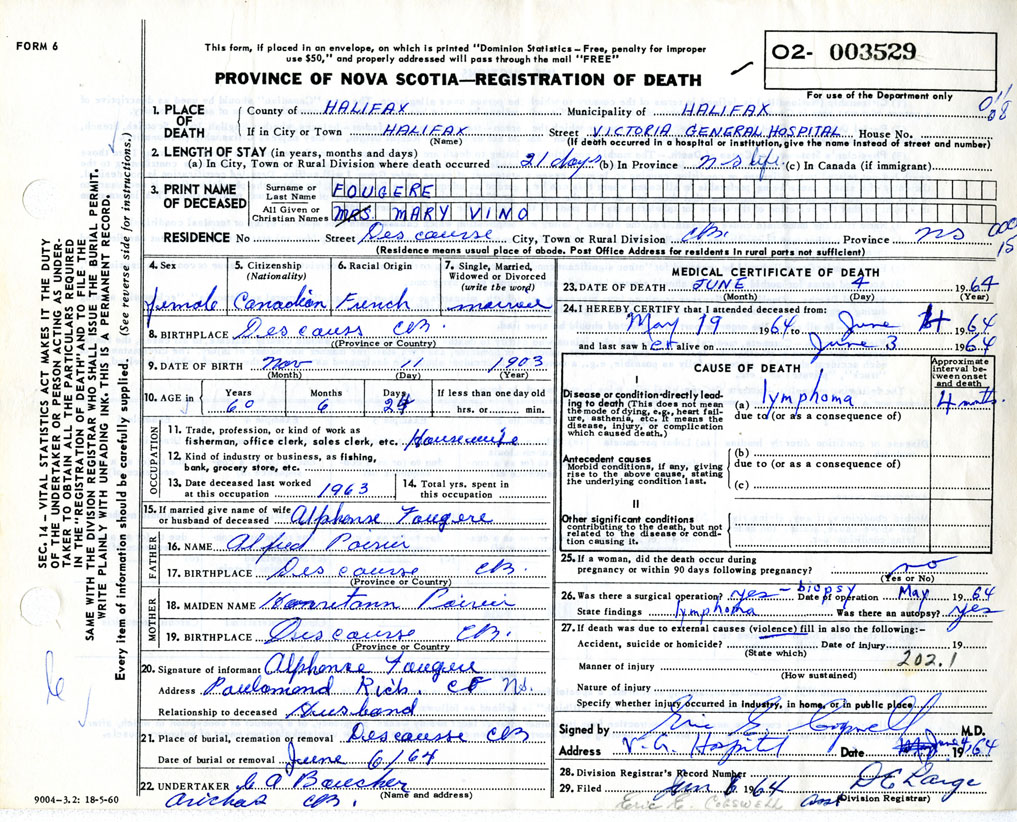 FORM 6
This form, if placed in an envelope, on which is printed "Dominion Statistics—Free, penalty for improper
use $50," and properly addressed will pass through the mail "FREE"
PROVINCE OF NOVA SCOTIA—REGISTRATION OF DEATH
02- 003529
For use of the Department only
SEC. 14 – VITAL STATISTICS ACT MAKES IT THE DUTY
OF THE UNDERTAKER OR PERSON ACTING AS UNDER-
TAKER TO OBTAIN ALL THE PARTICULARS REQUIRED
IN THE "REGISTRATION OF DEATH" AND TO FILE THE
SAME WITH THE DIVISION REGISTRAR WHO SHALL ISSUE THE BURIAL PERMIT.
WRITE PLAINLY WITH UNFADING INK. THIS IS A PERMANENT RECORD.
Every item of information should be carefully supplied. (See reverse side for instructions.)
1. PLACE OF DEATH
County of HALIFAX Municipality of HALIFAX
If in City or Town HALIFAX Street VICTORIA GENERAL HOSPITAL House No.
(Name) (If death occurred in a hospital or institution, give name instead of street and number)
2. LENGTH OF STAY (in years, months and days)
(a) In City, Town or Rural Division where death occurred 21 days (b) In Province N S life (c) In Canada (if immigrant)
3. PRINT NAME OF DECEASED
Surname or Last Name FOUGERE
All Given or Christian Names MRS. MARY VINO
RESIDENCE No Street Descousse City, Town or Rural Division CB. Province NS
(Residence means usual place of abode. Post Office Address for residents in rural parts not sufficient)
4. Sex female
5. Citizenship (Nationality) Canadian
6. Racial Origin French
7. Single, Married, Widowed or Divorced (write the word) married
8. BIRTHPLACE Descouss CB.
(Province or Country)
9. DATE OF BIRTH Nov 11 1903
(Month) (Day) (Year)
10. AGE in Years 60 Months 6 Days 24 If less than one day old hrs. or min.
OCCUPATION
11. Trade, profession, or kind of work as
fisherman, office clerk, sales clerk, etc. Housewife
12. Kind of industry or business, as fishing,
bank, grocery store, etc.
13. Date deceased last worked at this occupation 1963
14. Total yrs. spent in this occupation
15. If married give name of wife
or husband of deceased Alphonse Fougere
FATHER
16. NAME Alfred Poirier
17. BIRTHPLACE Descousse CB.
(Province or Country)
MOTHER
18. MAIDEN NAME Poirier
19. BIRTHPLACE Descousse CB.
(Province or Country)
20. Signature of informant Alphonse Fougere
Address Poulamond Rich. Co NS.
Relationship to deceased Husband
21. Place of burial, cremation or removal Descousse CB
Date of burial or removal June 6/64
22. UNDERTAKER C A Boucher
(Name and address)
Arichat CB.
9004-3.2: 18-5-60
MEDICAL CERTIFICATE OF DEATH
23. DATE OF DEATH JUNE 4 1964
(Month) (Day) (Year)
24. I HEREBY CERTIFY that I attended deceased from:
May 19 1964 to June 1964
and last saw her alive on June 3 1964
CAUSE OF DEATH
Approximate interval between onset and death
I
Disease or condition directly lead-
ing to death (This does not mean
the mode of dying, e.g., heart fail-
ure, asthenia, etc. It means the
disease, injury, or complication
which caused death.)
(a) lymphoma 4 months.
due to (or as a consequence of)
Antecedent causes
Morbid conditions, if any, giving
rise to the above cause, stating
the underlying condition last.
(b)
due to (or as a consequence of)
(c)
II
Other significant conditions
contributing to the death, but not
related to the disease or condi-
tion causing it.
25. If a woman, did the death occur during
pregnancy or within 90 days following pregnancy? no
(Yes or No)
26. Was there a surgical operation? yes – biopsy Date of operation May 1964
State findings lymphoma Was there an autopsy? yes
27. If death was due to external causes (violence) fill in also the following:-
Accident, suicide or homicide? Date of injury 19
(State which)
202.1
Manner of injury
(How sustained)
Nature of injury
Specify whether injury occurred in industry, in home, or in public place
Signed by Eric E. Cogswell M.D.
Address V. G. Hospital Date June 4, 1964
28. Division Registrar's Record Number
29. Filed Jun 6 1964 D E Large
Asst Division Registrar)
ERIC E. COGSWELL